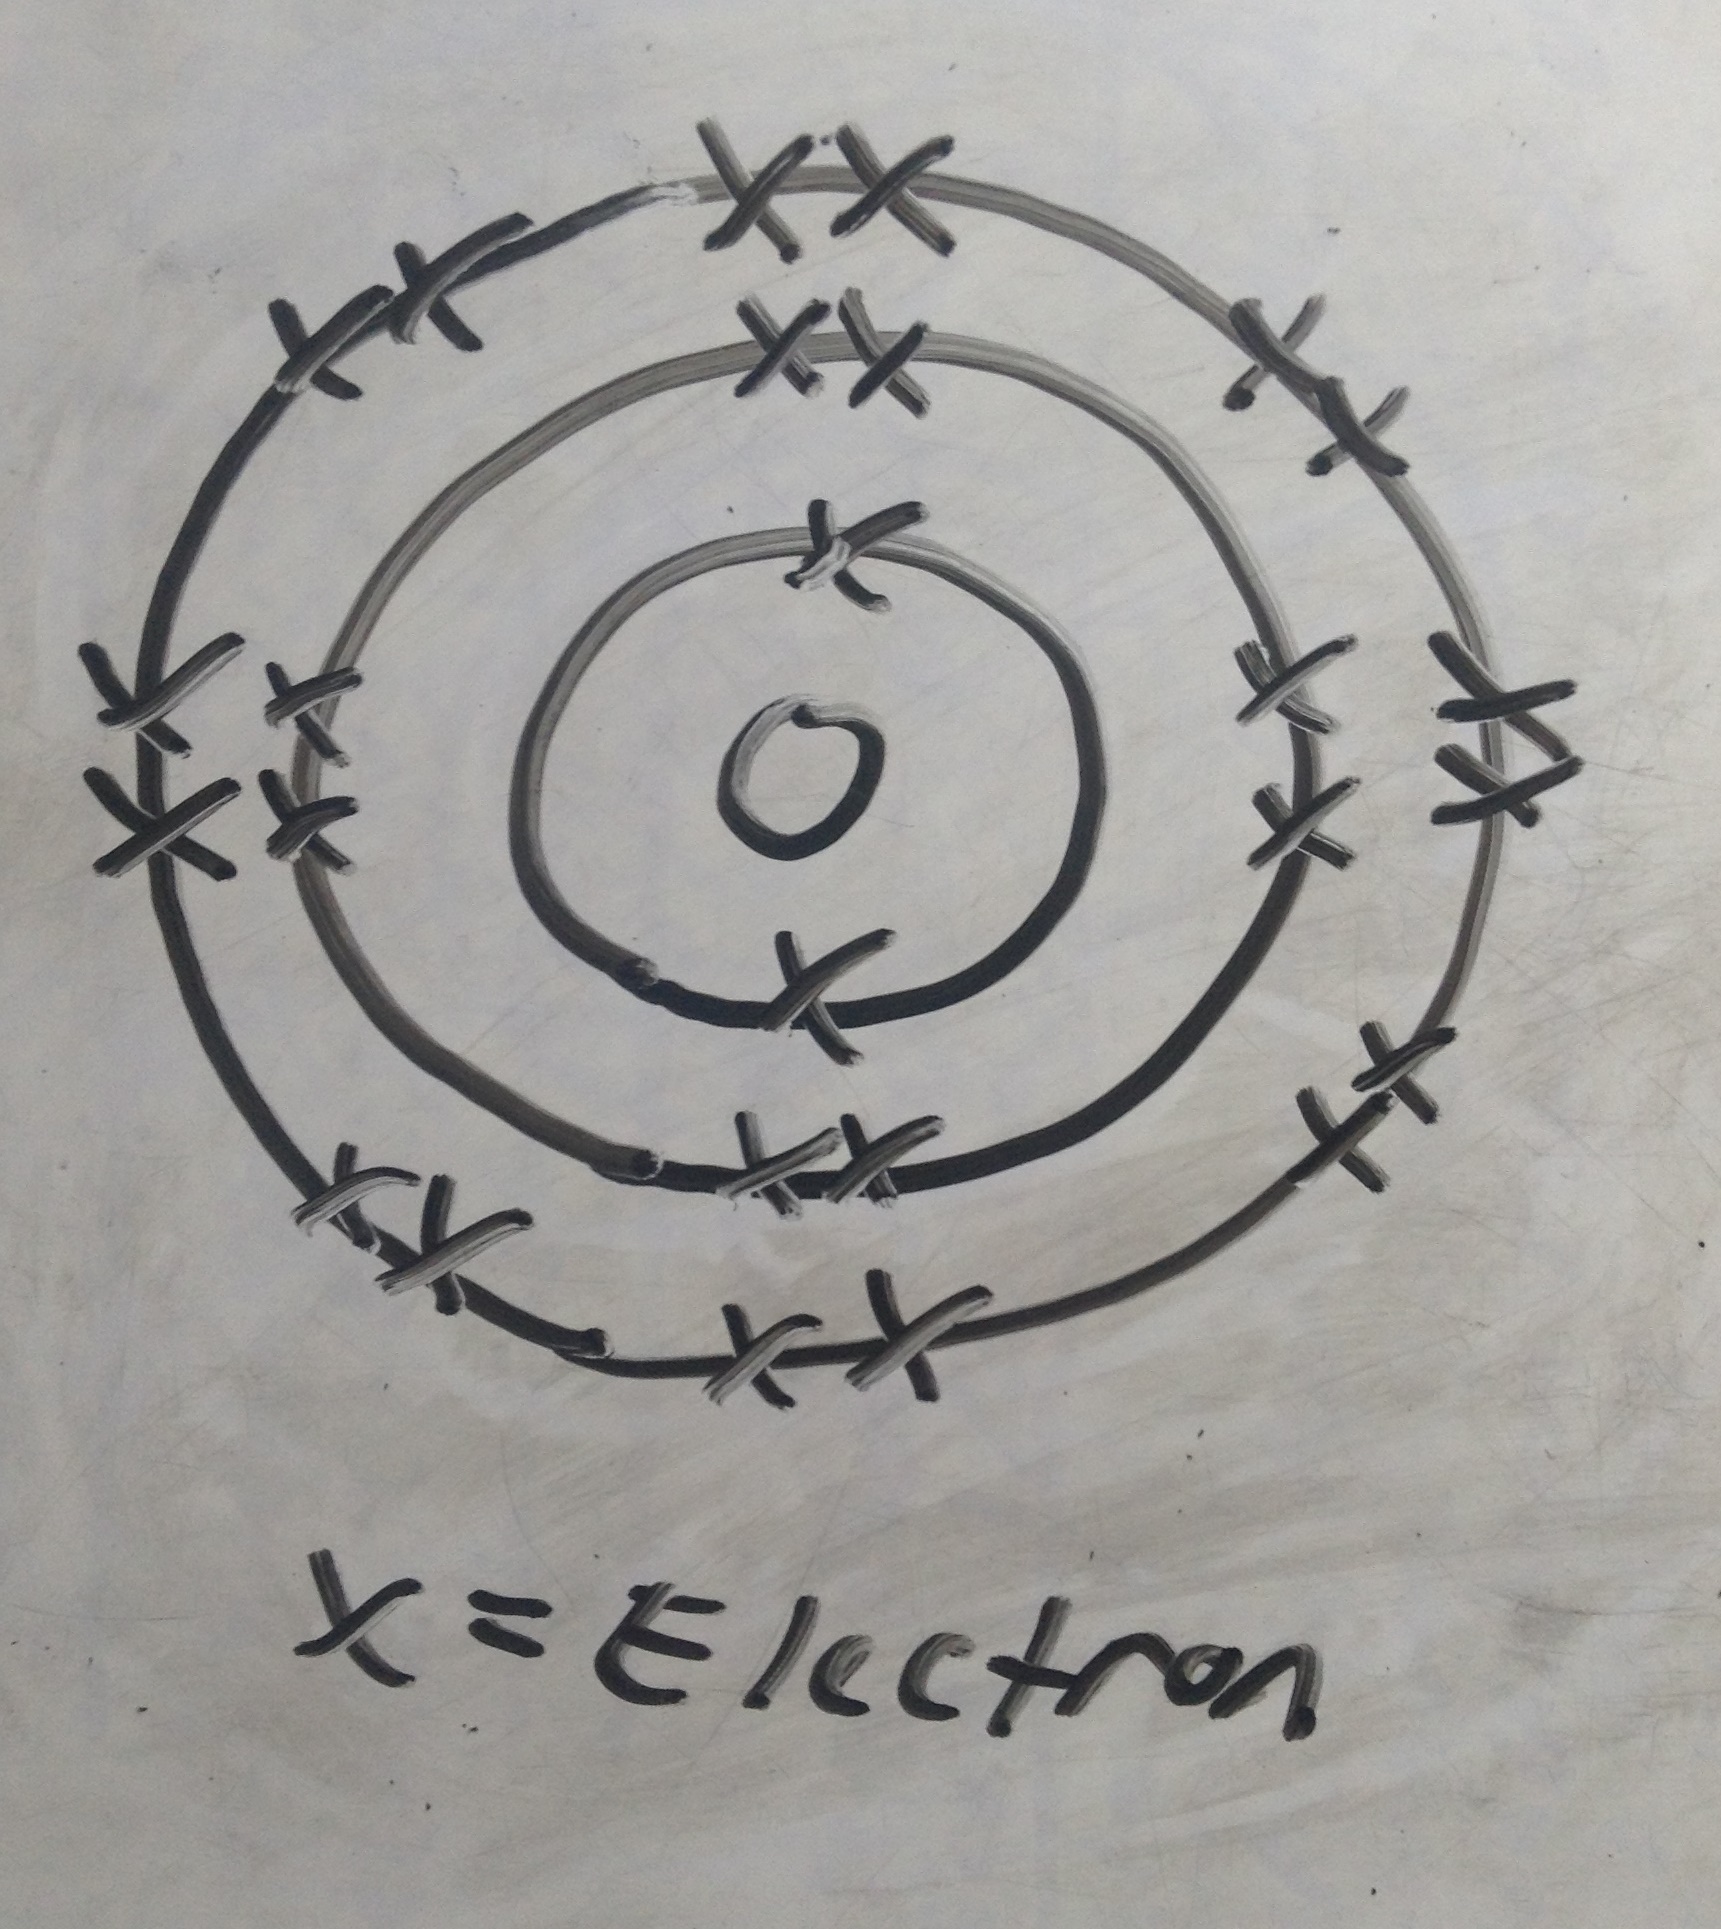 x = Electron